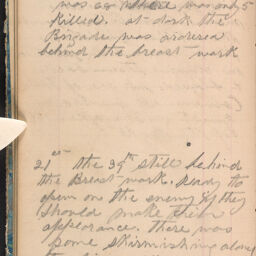 was as there was only 5
Killed. at dark the
Brigade was ordered
behind the breast work
21st the 39th still behind
the Breast-work. Ready to
open on the enemy if they
should make their
appearance. there was
some skirmishing along